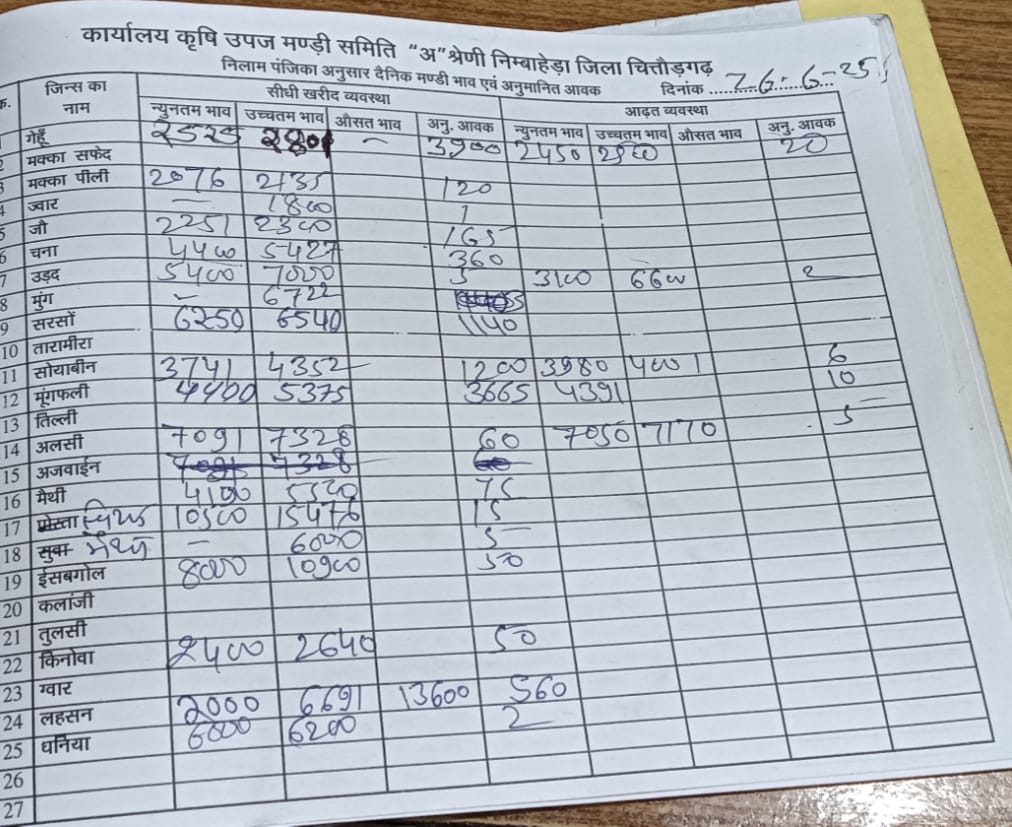 कार्यालय कृषि उपज मण्ड़ी समिति "अ" श्रेणी निम्बाहेड़ा जिला चित्तौड़गढ़
निलाम पंजिका अनुसार दैनिक मण्डी भाव एवं अनुमानित आवक दिनांक 26-6-25
क्र. जिन्स का नाम सीधी खरीद व्यवस्था आढ़त व्यवस्था
न्युनतम भाव उच्चतम भाव औसत भाव अनु. आवक न्युनतम भाव उच्चतम भाव औसत भाव अनु. आवक
1 गेहूँ 2525 2801 - 3900 2450 20
2 मक्का सफेद
3 मक्का पीली 2076 2135 120
4 ज्वार - 1800 1
5 जौ 2251 2300 165
6 चना 4400 5427 360
7 उड़द 5400 7050 5 3100 6600 2
8 मुंग - 6722
9 सरसों 6250 6540 1140
10 तारामीरा
11 सोयाबीन 3741 4352 1200 3980 4001 6
12 मूंगफली 4400 5375 3665 4391 10
13 तिल्ली
14 अलसी 7091 7328 60 7050 7170 5
15 अजवाईन 7091 7328 60
16 मैथी 4100 75
17 पोस्ता 10500 15476 15
18 सुवा - 6000 5
19 ईसबगोल 8000 10900 50
20 कलांजी
21 तुलसी
22 किनोवा 2400 2640 50
23 ग्वार
24 लहसन 2000 6691 13600 560
25 धनिया 6000 6200 2
26
27